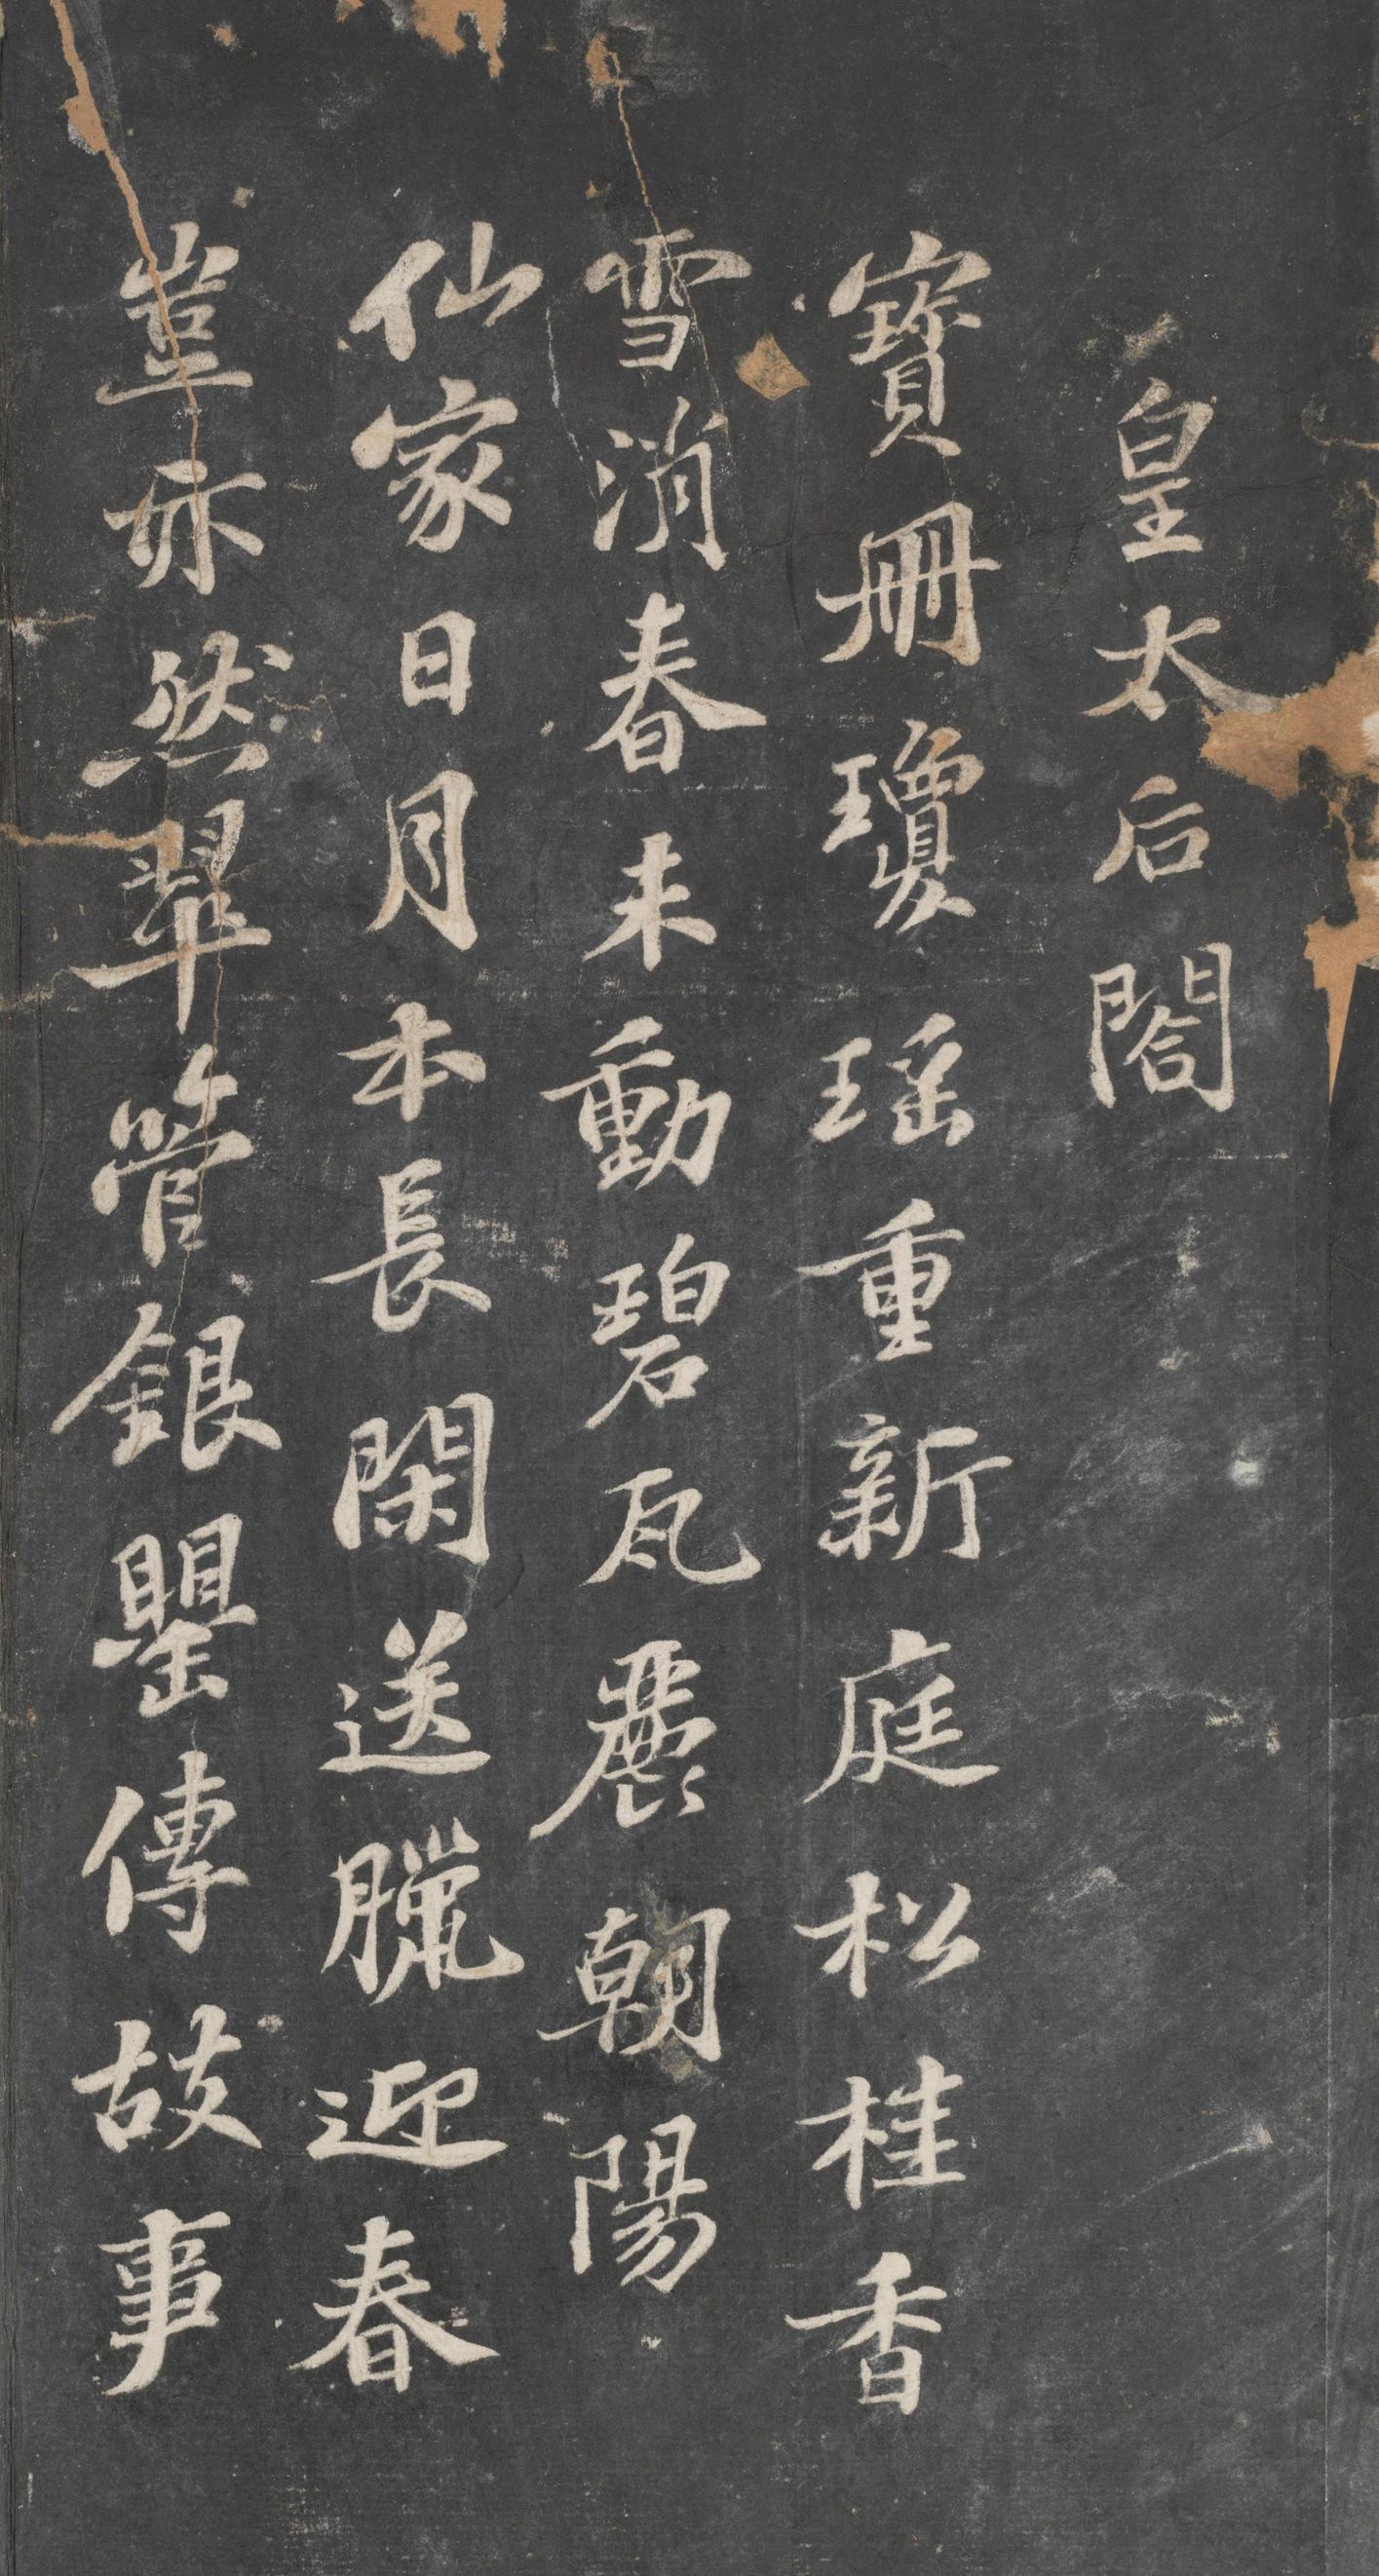 皇太后閤
寶冊瓊瑤重新庭松桂香
雪消春未動碧瓦麗朝陽
仙家日月本長閑送臘迎春
豈亦然翠管銀罌傳故事